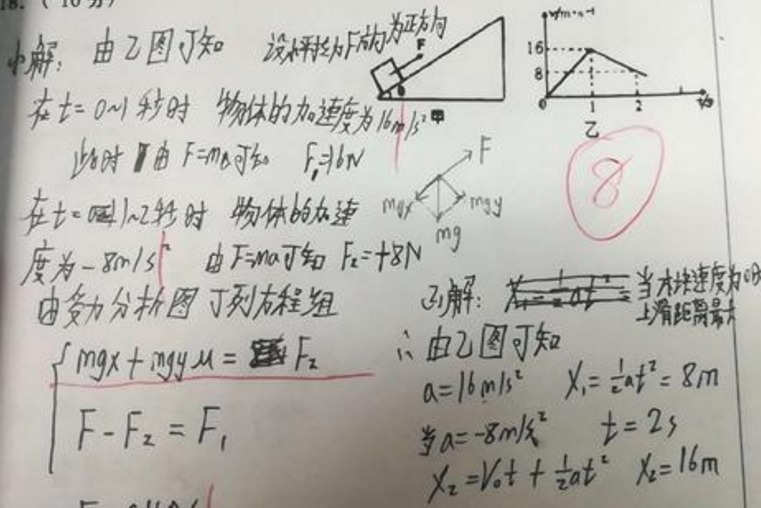 18. ( 10分)
(1)解: 由乙图可知 设水平拉力F方向为正方向
F
θ
甲
v/m·s⁻¹
16
8
0 1 2 t/s
乙
在t=0~1秒时 物体的加速度为16m/s²
此时 由F=ma可知 F₁=16N
F
mgx mgy
mg
8
在t=1~2秒时 物体的加速
度为-8m/s² 由F=ma可知 F₂=+8N
由受力分析图可列方程组
mgx+mgyμ= F₂
F-F₂=F₁
解: 当木块速度为0时
上滑距离最大
∴由乙图可知
a=16m/s² X₁=½at²=8m
当a=-8m/s² t=2s
X₂=V₀t+½at² X₂=16m